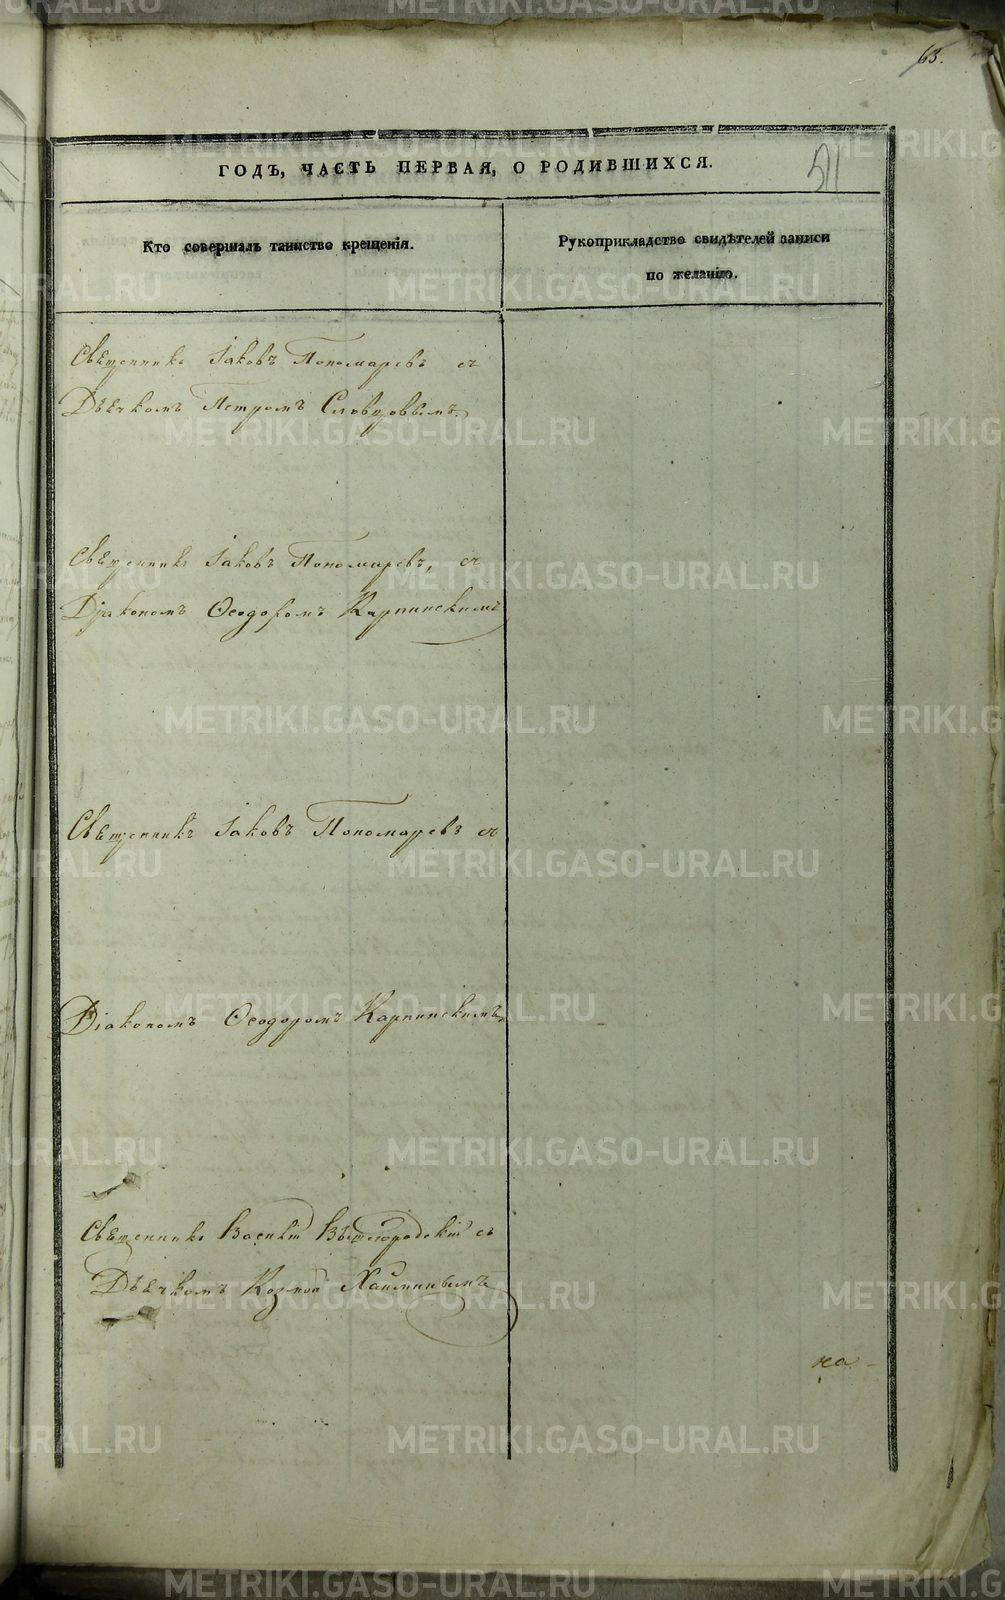 63.
511
ГОДЪ, ЧАСТЬ ПЕРВАЯ, О РОДИВШИХСЯ.
Кто совершалъ таинство крещенія.
Рукоприкладство свидѣтелей записи
по желанію.
Священникъ Іаковъ Пономаревъ съ
Дьячкомъ Петромъ Словцовымъ
Священникъ Іаковъ Пономаревъ, съ
Діакономъ Ѳеодоромъ Карпинскимъ
Священникъ Іаковъ Пономаревъ съ
Діакономъ Ѳеодоромъ Карпинскимъ
Священникъ Василій Вышегородскій съ
Дьячкомъ Козмой
на
METRIKI.GASO-URAL.RU